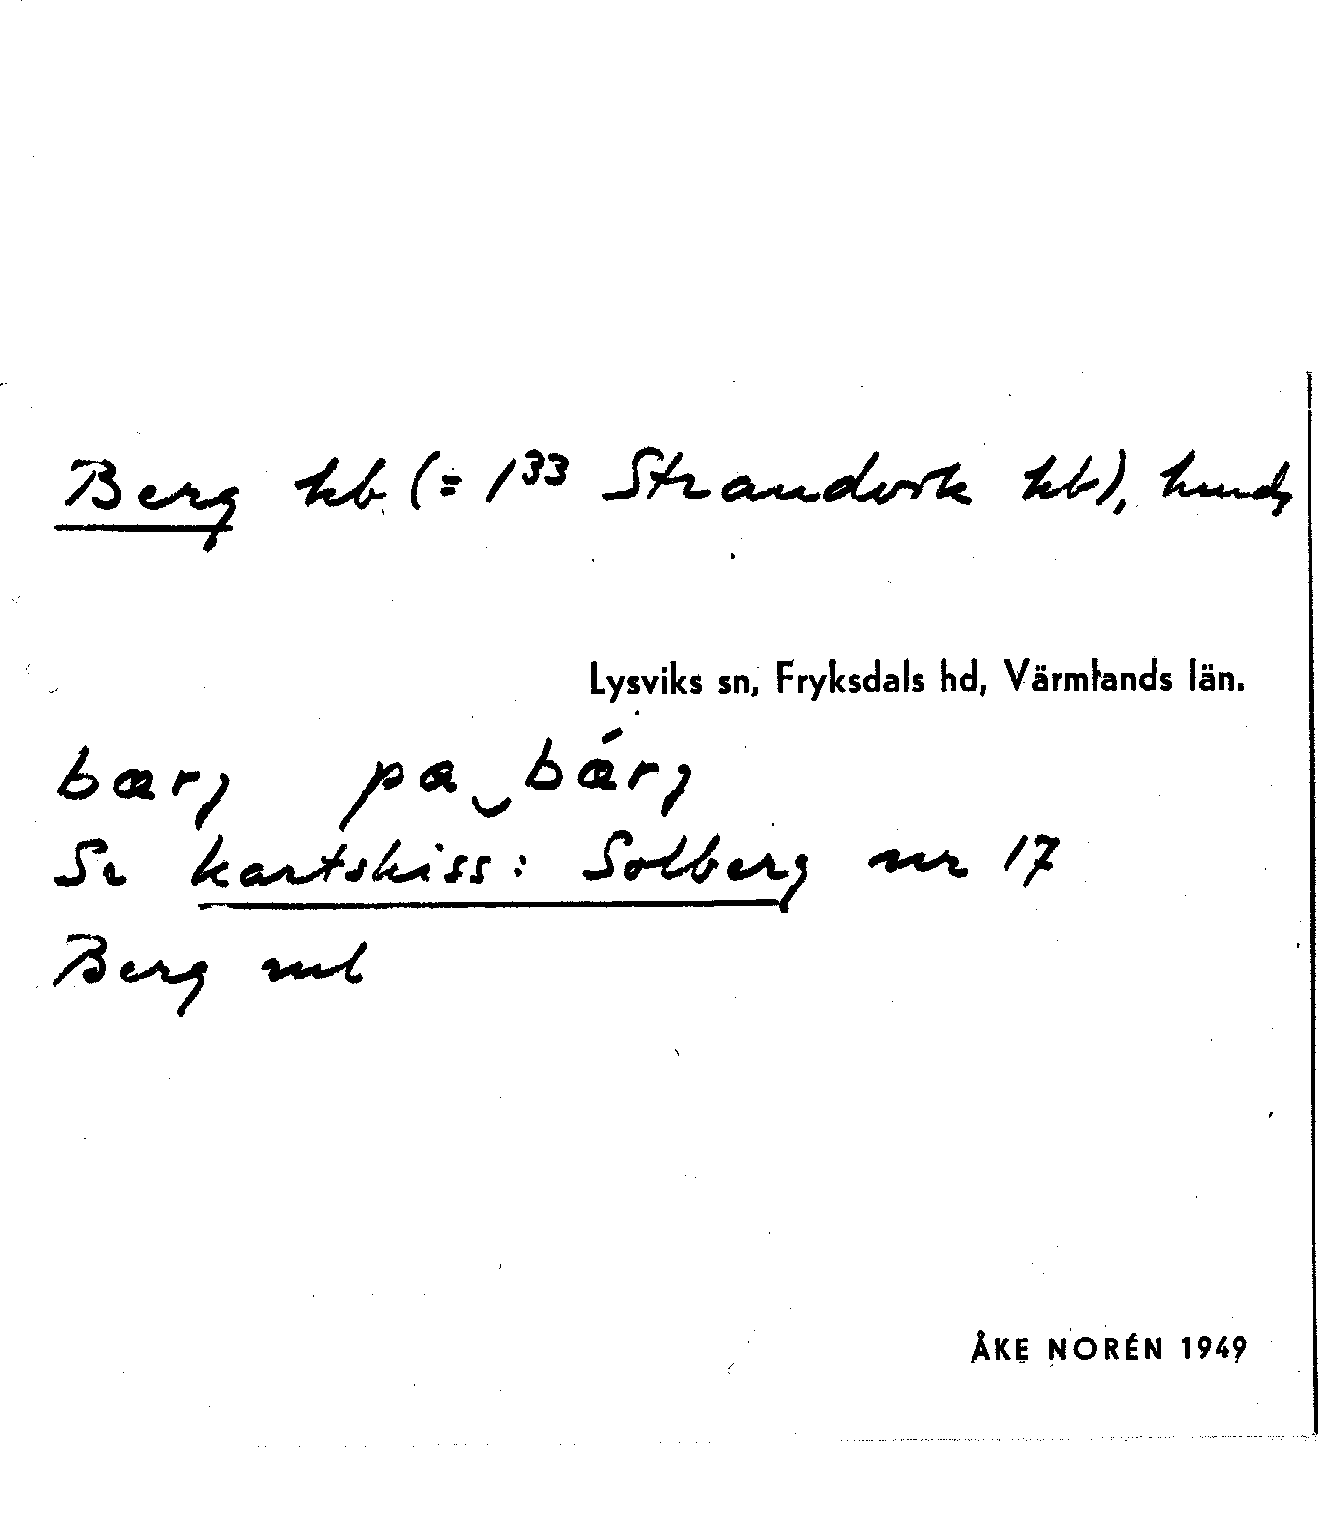 Berg hb (= 1³³ Strandvik hb), hmd
Lysviks sn, Fryksdals hd, Värmlands län.
bærj pa‿bǽrj
Se kartskiss: Solberg nr 17
Berg
ÅKE NORÉN 1949